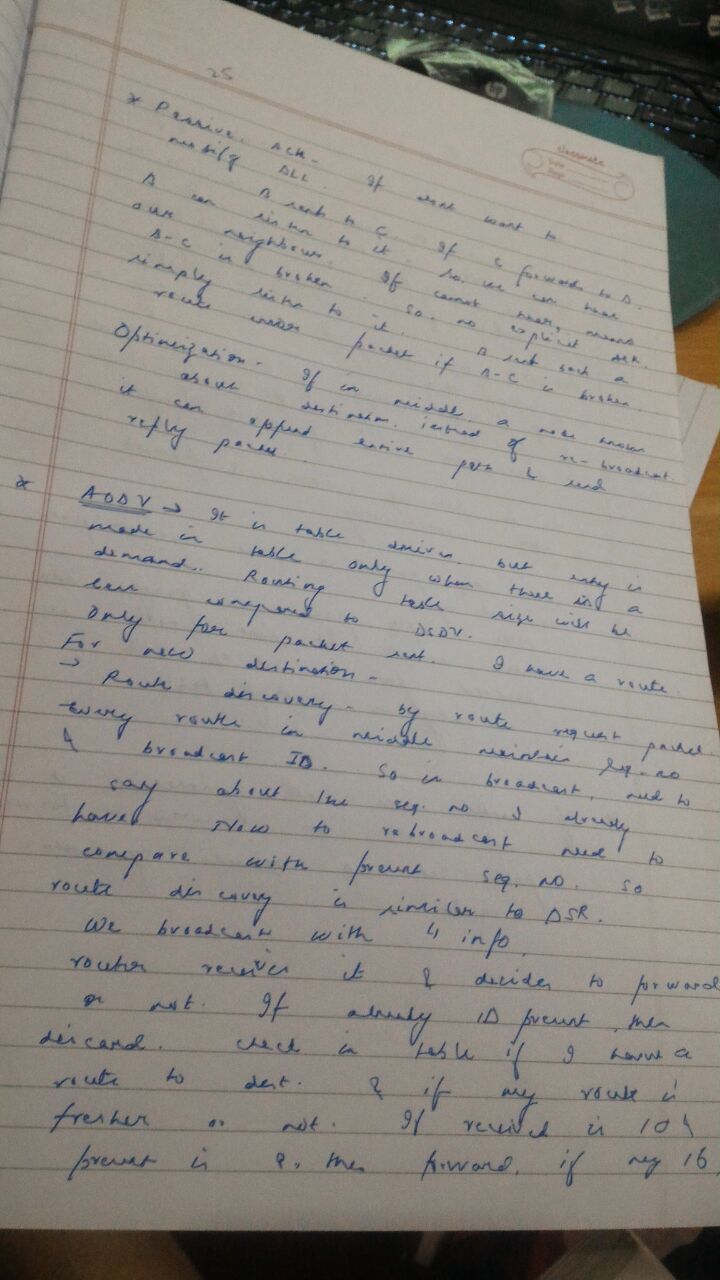 25
classmate
Date
Page
* Passive ACK - If dont want to
notify ALL.
B sends to C. If C forwards to D.
B can listen to it. So, we can hear
our neighbours. If cannot hear, means
B-C is broken. So, no explicit ACK.
simply listen to it. B send back a
route error packet if B-C is broken.
Optimization - If in middle a node knows
about destination, instead of re-broadcast
it can append entire path & send
reply packet
* AODV → It is table driven but entry is
made in table only when there is a
demand. Routing table size will be
less compared to DSDV.
Only for packet sent. I have a route.
For new destination -
→ Route discovery - by route request packet
Every route in middle maintain seq. no
& broadcast ID. So in broadcast, need to
say about the seq. no I already
have. Now to rebroadcast need to
compare with present seq. no. So
route discovery is similar to DSR.
We broadcast with 4 info.
router receives it & decides to forward
or not. If already ID present, then
discard. Check in table if I have a
route to dest. & if my route is
fresher or not. If received is 10 &
present is 8, then forward, if my 16,